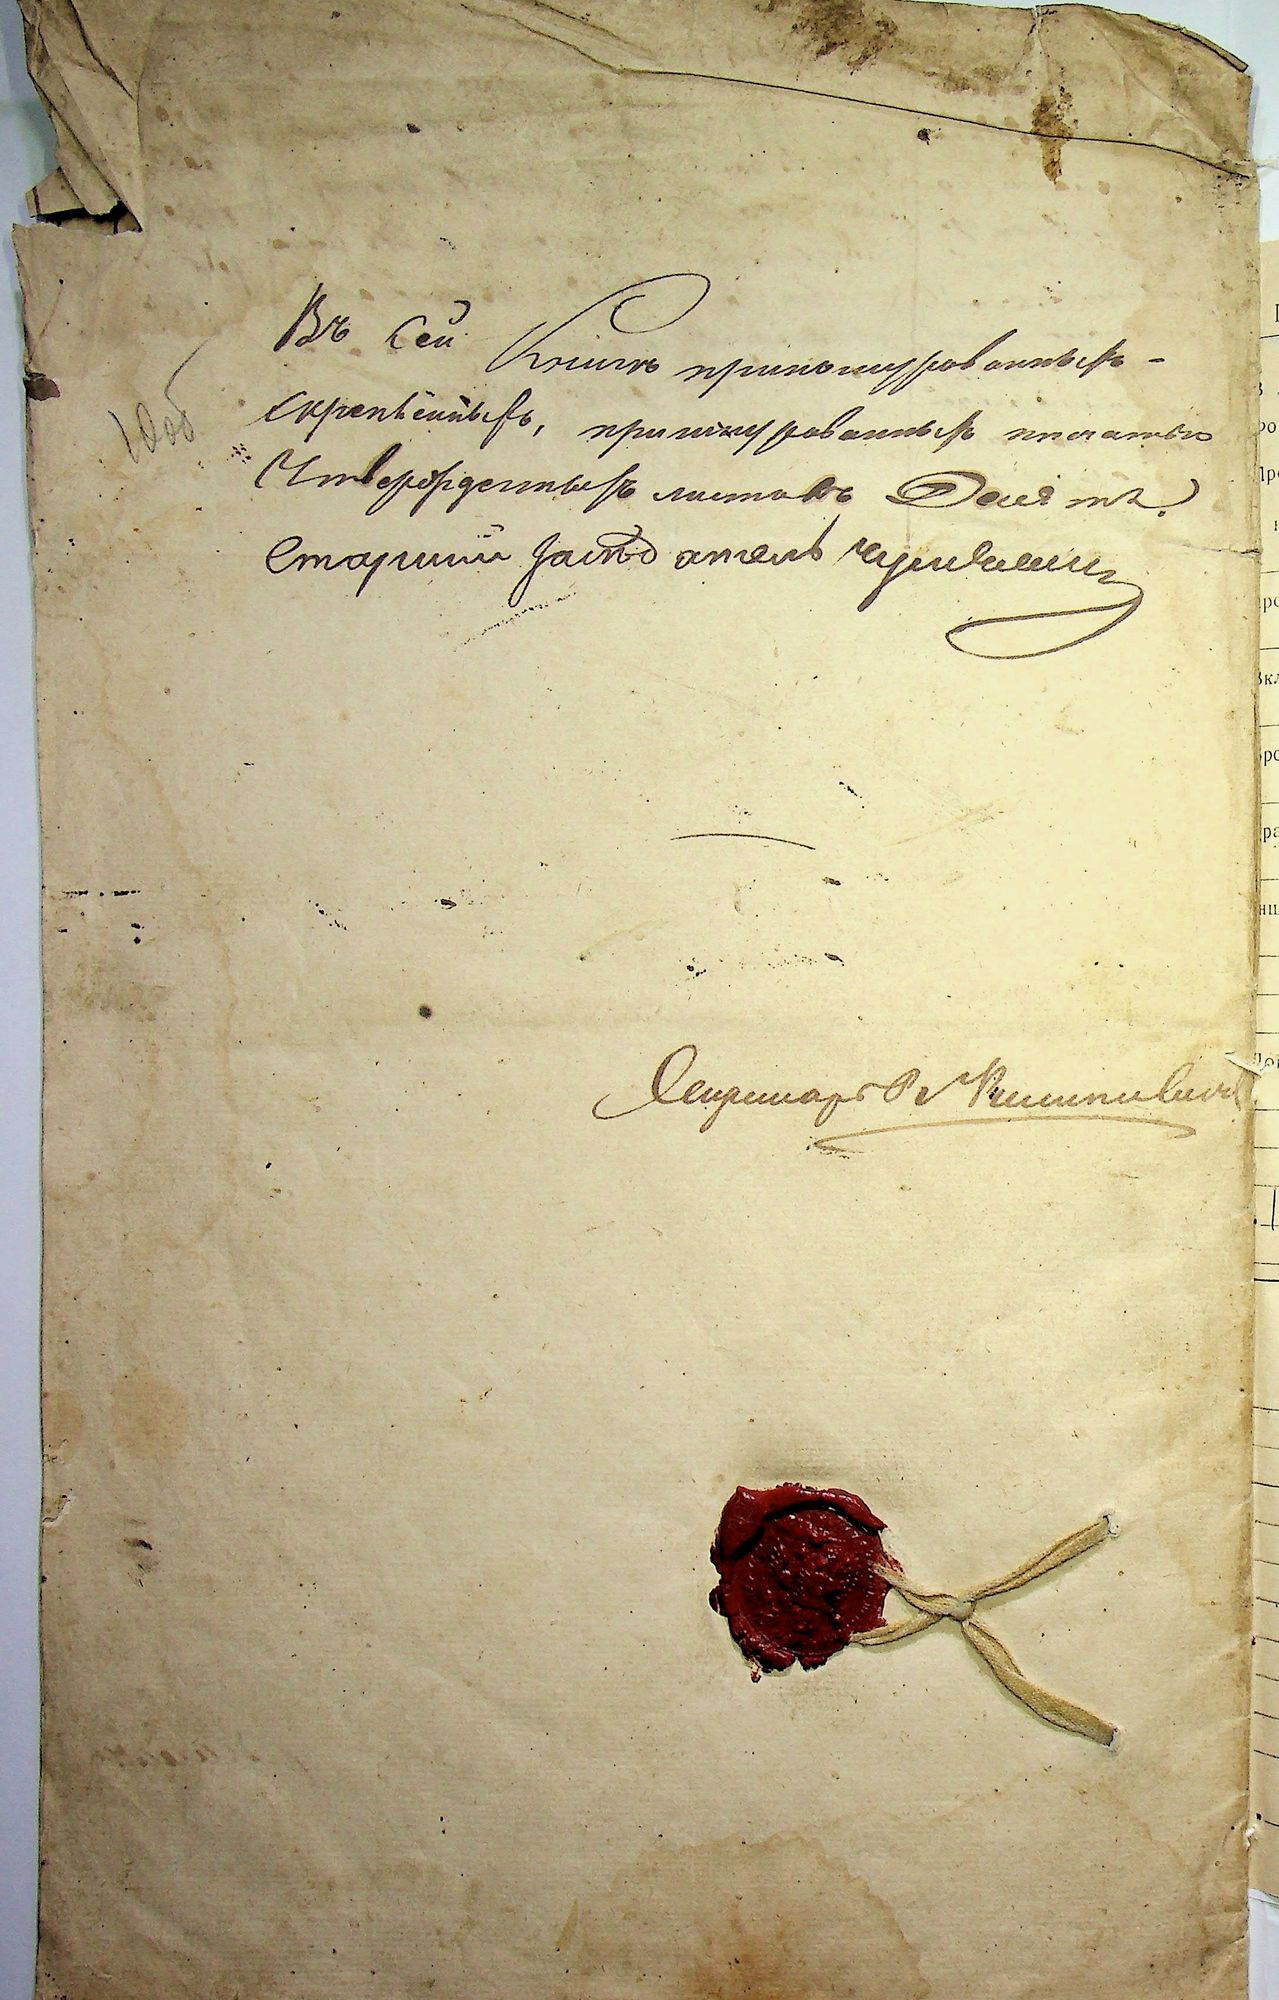 Въ сей Книгѣ пришнурованныхъ -
скрепленныхъ, пришнурованныхъ печатью
Утвержденныхъ листовъ Девять.
Старшій засѣдатель
10об
Секретарь